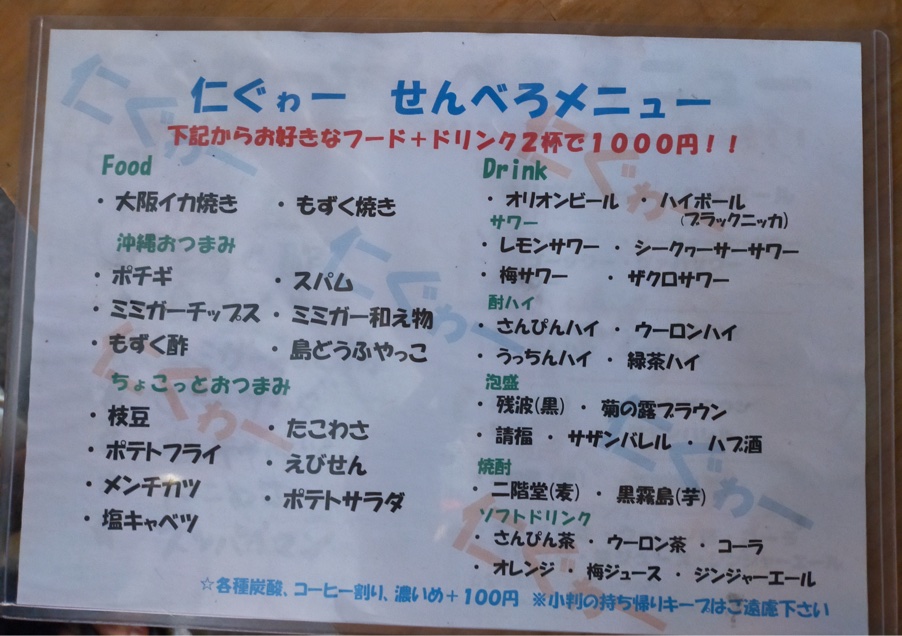 仁ぐゎー せんべろメニュー
下記からお好きなフード＋ドリンク２杯で１０００円！！
Food
・大阪イカ焼き ・もずく焼き
沖縄おつまみ
・ポチギ ・スパム
・ミミガーチップス ・ミミガー和え物
・もずく酢 ・島どうふやっこ
ちょこっとおつまみ
・枝豆 ・たこわさ
・ポテトフライ ・えびせん
・メンチカツ ・ポテトサラダ
・塩キャベツ
Drink
・オリオンビール ・ハイボール
(ブラックニッカ)
サワー
・レモンサワー ・シークヮーサーサワー
・梅サワー ・ザクロサワー
酎ハイ
・さんぴんハイ ・ウーロンハイ
・うっちんハイ ・緑茶ハイ
泡盛
・残波(黒) ・菊の露ブラウン
・請福 ・サザンバレル ・ハブ酒
焼酎
・二階堂(麦) ・黒霧島(芋)
ソフトドリンク
・さんぴん茶 ・ウーロン茶 ・コーラ
・オレンジ ・梅ジュース ・ジンジャーエール
☆各種炭酸、コーヒー割り、濃いめ＋100円 ※小判の持ち帰りキープはご遠慮下さい
仁ぐゎー
仁ぐゎー
仁ぐゎー
仁ぐゎー
仁ぐゎー
仁ぐゎー